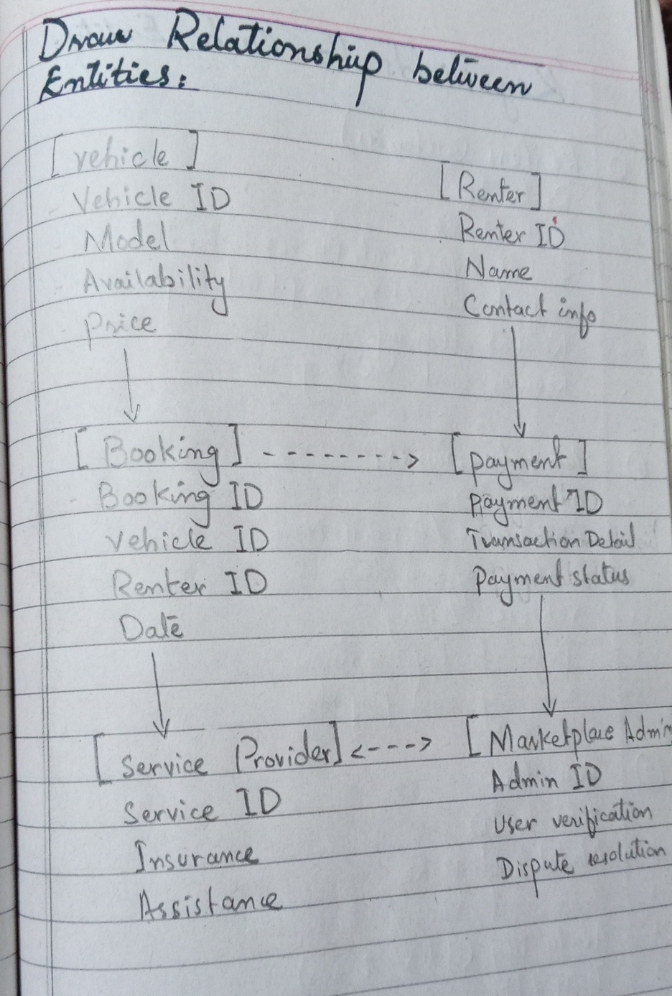 Draw Relationship between
Entities:
[vehicle]
Vehicle ID
Model
Availability
Price
[Renter]
Renter ID
Name
Contact info
[Booking] --------> [payment]
Booking ID
vehicle ID
Renter ID
Date
Payment ID
Transaction Detail
Payment status
[Service Provider] <---> [Marketplace Admin
Service ID
Insurance
Assistance
Admin ID
User verification
Dispute resolution